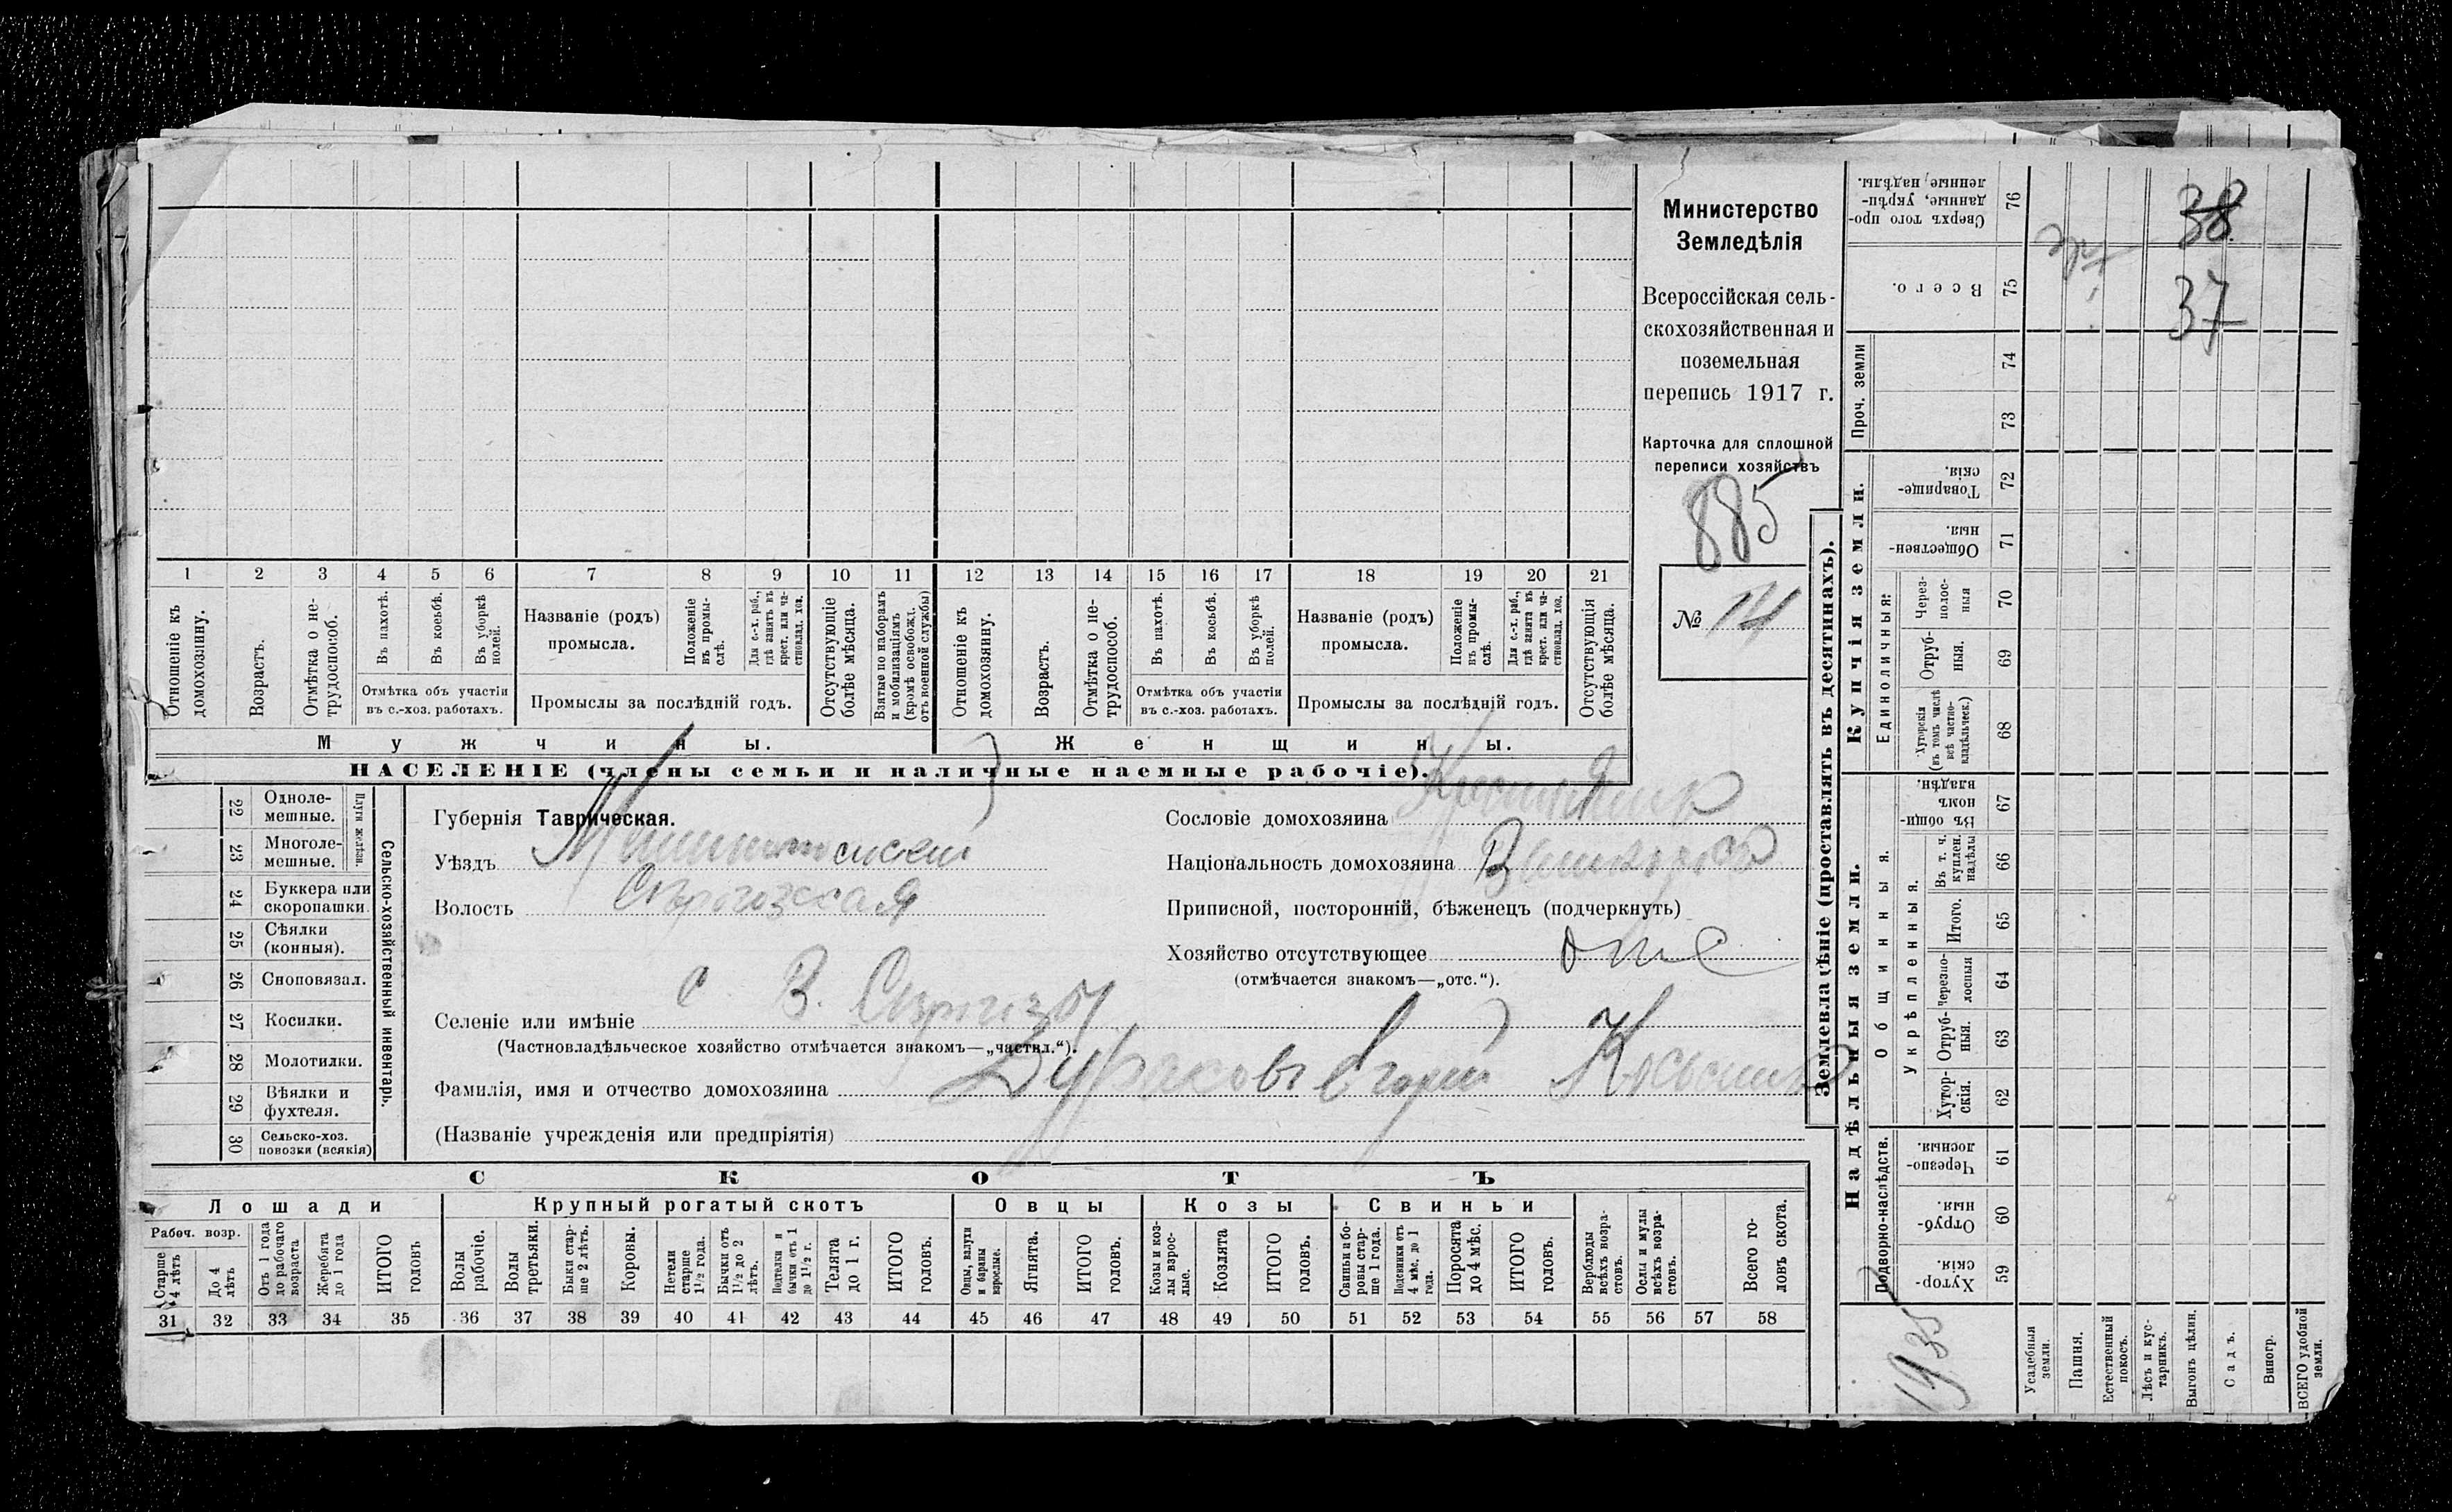 1 2 3 4 5 6 7 8 9 10 11 12 13 14 15 16 17 18 19 20 21
Отношеніе къ домохозяину.
Возрастъ.
Отмѣтка о не-
трудоспособ.
Въ пахотѣ.
Въ косьбѣ.
Въ уборкѣ
полей.
Отмѣтка объ участіи
въ с.-хоз. работахъ.
Названіе (родъ)
промысла.
Положеніе
въ промы-
слѣ.
Для с.-х. раб.,
гдѣ занятъ въ
крест. или ча-
стновлад. хоз.
Промыслы за послѣдній годъ.
Отсутствующіе
болѣе мѣсяца.
Взятые по наборамъ
и мобилизаціямъ
(кромѣ освобожд.
отъ военной службы)
Отношеніе къ
домохозяину.
Возрастъ.
Отмѣтка о не-
трудоспособ.
Въ пахотѣ.
Въ косьбѣ.
Въ уборкѣ
полей.
Отмѣтка объ участіи
въ с.-хоз. работахъ.
Названіе (родъ)
промысла.
Положеніе
въ промы-
слѣ.
Для с.-х. раб.,
гдѣ занята въ
крест. или ча-
стновлад. хоз.
Промыслы за послѣдній годъ.
Отсутствующія
болѣе мѣсяца.
Мужчины.
Женщины.
НАСЕЛЕНІЕ (члены семьи и наличные наемные рабочіе).
Министерство
Земледѣлія
Всероссійская сель-
скохозяйственная и
поземельная
перепись 1917 г.
Карточка для сплошной
переписи хозяйствъ
885
№ 14
22 Одноле-
мешные.
23 Многоле-
мешные.
Плуги желѣзн.
24 Буккера или
скоропашки
25 Сѣялки
(конныя).
26 Сноповязал.
27 Косилки.
28 Молотилки.
29 Вѣялки и
фухтеля.
30 Сельско-хоз.
повозки (всякія)
Сельско-хозяйственный инвентарь.
Губернія Таврическая.
Уѣздъ
Волость
Селеніе или имѣніе с. В.
(Частновладѣльческое хозяйство отмѣчается знакомъ—„частвл.“).
Фамилія, имя и отчество домохозяина
(Названіе учрежденія или предпріятія)
Сословіе домохозяина
Національность домохозяина
Приписной, посторонній, бѣженецъ (подчеркнуть)
Хозяйство отсутствующее отс
(отмѣчается знакомъ—„отс.“).
СКОТЪ
Лошади
Рабоч. возр.
Старше
4 лѣтъ
До 4
лѣтъ
Отъ 1 года
до рабочаго
возраста
Жеребята
до 1 года
ИТОГО
головъ
Крупный рогатый скотъ
Волы
рабочіе.
Волы
третьяки.
Быки стар-
ше 2 лѣтъ.
Коровы.
Нетели
старше
1½ года.
Бычки отъ
1½ до 2
лѣтъ.
Подтелки и
бычки отъ 1
до 1½ г.
Телята
до 1 г.
ИТОГО
головъ.
Овцы
Овцы, валухи
и бараны
взрослые.
Ягнята.
ИТОГО
головъ.
Козы
Козы и коз-
лы взрос-
лые.
Козлята
ИТОГО
головъ.
Свиньи
Свиньи и бо-
ровы стар-
ше 1 года.
Подсвинки отъ
4 мѣс. до 1
года.
Поросята
до 4 мѣс.
ИТОГО
головъ.
Верблюды
всѣхъ возра-
стовъ.
Ослы и мулы
всѣхъ возра-
стовъ.
Всего го-
ловъ скота.
31 32 33 34 35 36 37 38 39 40 41 42 43 44 45 46 47 48 49 50 51 52 53 54 55 56 57 58
Землевладѣніе (проставлять въ десятинахъ).
Надѣльныя земли.
Подворно-наслѣдств.
Хутор-
скія. 59
Отруб-
ныя. 60
Черезпо-
лосныя. 61
Общинныя.
Укрѣпленныя.
Хутор-
скія. 62
Отруб-
ныя. 63
Черезпо-
лосныя 64
Итого. 65
Въ т. ч.
куплен.
надѣлы 66
Въ общи-
номъ
владѣн. 67
Купчія земли.
Единоличныя:
Хуторскія
(въ томъ числѣ
всѣ частно-
владѣльческ.) 68
Отруб-
ныя. 69
Через-
полос-
ныя 70
Обществен-
ныя. 71
Товарище-
скія. 72
Проч. земли
73
74
Всего. 75
Сверхъ того про-
данные, укрѣп-
ленные, надѣлы. 76
38
37
Усадебныя
земли.
Пашня.
Естественный
покосъ.
Лѣсъ и кус-
тарникъ.
Выгонъ цѣлин.
Садъ.
Виногр.
ВСЕГО удобной
земли.